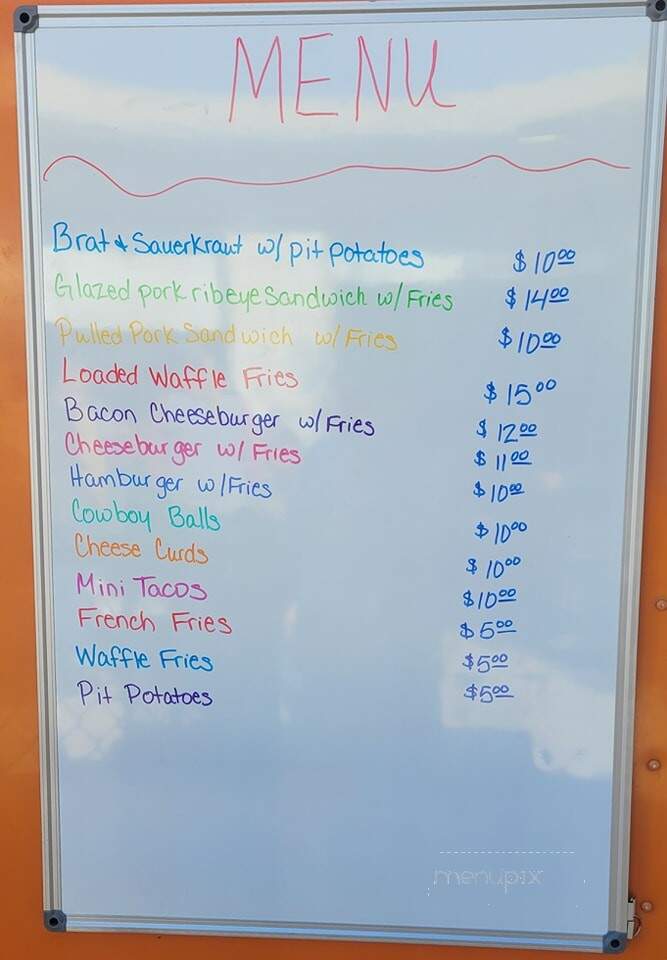 MENU
Brat & Sauerkraut w/ pit potatoes $10.00
Glazed pork ribeye Sandwich w/ Fries $14.00
Pulled Pork Sandwich w/ Fries $10.00
Loaded Waffle Fries $15.00
Bacon Cheeseburger w/ Fries $12.00
Cheeseburger w/ Fries $11.00
Hamburger w/ Fries $10.00
Cowboy Balls $10.00
Cheese Curds $10.00
Mini Tacos $10.00
French Fries $5.00
Waffle Fries $5.00
Pit Potatoes $5.00
menupix